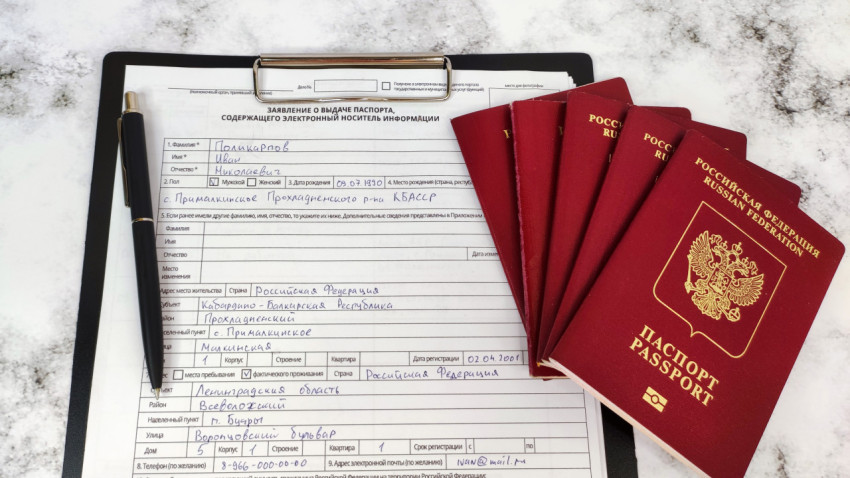 ЗАЯВЛЕНИЕ О ВЫДАЧЕ ПАСПОРТА,
СОДЕРЖАЩЕГО ЭЛЕКТРОННЫЙ НОСИТЕЛЬ ИНФОРМАЦИИ
1. Фамилия * Поликарпов
Имя * Иван
Отчество * Николаевич
2. Пол Мужской Женский 3. Дата рождения 09.07.1990 4. Место рождения (страна, республ
с. Прималкинское Прохладненского р-на КБАССР
5. Если ранее имели другие фамилию, имя, отчество, то укажите их ниже. Дополнительные сведения представлены в Приложении
Фамилия
Имя
Отчество Дата измен
Место
изменения
Адрес места жительства Страна Российская Федерация
субъект Кабардино-Балкарская Республика
район Прохладненский
населенный пункт с. Прималкинское
Малкинская
1 Корпус Строение Квартира Дата регистрации 02.04.2001
места пребывания фактического проживания Страна Российская Федерация
Ленинградская область
Район Всеволожский
Населенный пункт п. Бугры
Улица Воронцовский бульвар
Дом 5 Корпус 1 Строение Квартира 1 Срок регистрации с по
8. Телефон (по желанию) 8-966-000-00-00 9. Адрес электронной почты (по желанию) ivan@mail.ru
РОСС
РОССИ
РОССИ
РОССИЙСКАЯ ФЕДЕРАЦИЯ
RUSSIAN FEDERATION
ПАСПОРТ
PASSPORT